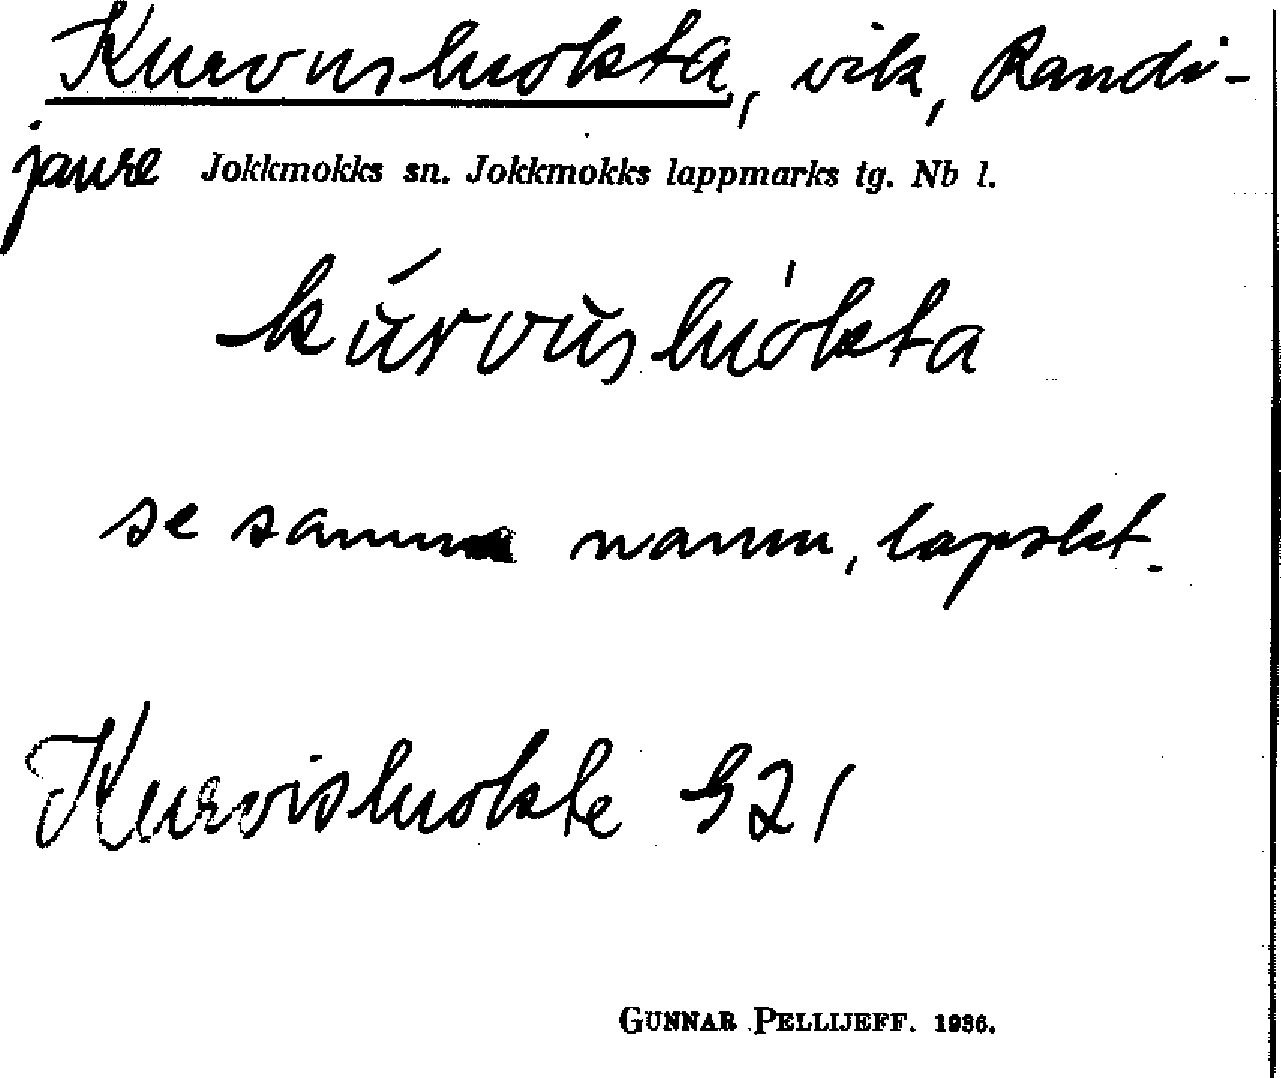 Kurvusluokta, vik, Randi-
jaure Jokkmokks sn. Jokkmokks lappmarks tg. Nb l.
kúrvùsluòkta
se samma namn, lapskt.
Kurvisluokte G21
GUNNAR PELLIJEFF. 1936.